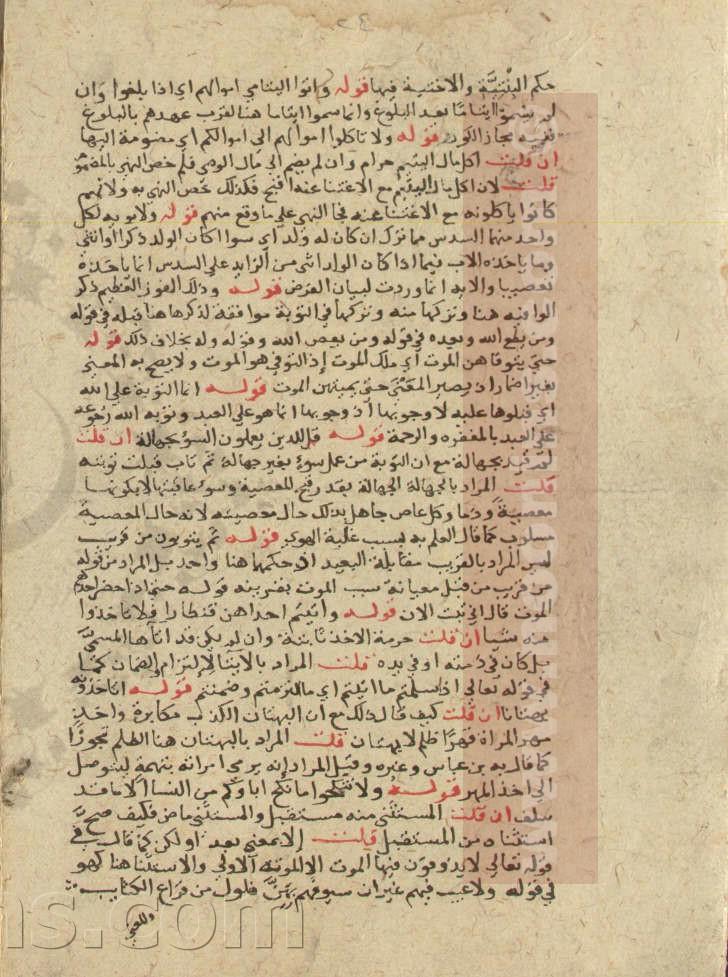 حكم البنتية والاختية فيها قوله واتوا اليتامي اموالهم اي اذا بلغوا وان
لم يسموا ايتاما بعد البلوغ وانما سموا ايتاما هنا لقرب عهدهم بالبلوغ
ففيه مجاز الكون قوله ولا تاكلوا اموالهم الي اموالكم اي مضمومة اليها
ان قلت اكل مال اليتيم حرام وان لم يضم الي مال الوصي فلم خص النهي بالمضموم
قلت لان اكل مال اليتيم مع الاغتنا عنه اقبح فلذلك خص النهي به ولانهم
كانوا ياكلونه مع الاغتنا عنه فجا النهي علي ما وقع منهم قوله ولابويه لكل
واحد منهما السدس مما ترك ان كان له ولد اي سوا اكان الولد ذكرا او انثي
وما ياخذه الاب فيما اذا كان الولد انثي من الزايد علي السدس انما ياخذه
تعصيبا والاية انما وردت لبيان الفرض قوله وذلك الفوز العظيم ذكر
الواو فيه هنا وتركها منه وتركها في التوبة موافقة لذكرها هنا قبله في قوله
ومن يطع الله وبعده في قوله ومن يعص الله وقوله وله بخلاف ذلك قوله
حتي يتوفاهن الموت اي ملك الموت اذ التوفي هو الموت ولا يصح به المعني
بغير اضمار اذ يصير المعني حتي يميتهن الموت قوله انما التوبة علي الله
اي قبولها عليه لا وجوبها اذ وجوبها انما هو علي العبد وتوبة الله رجوعه
علي العبد بالمغفرة والرحمة قوله للذين يعملون السوء بجهالة ان قلت
لم قيد بجهالة مع ان التوبة من عمل سوء بغير جهالة ثم تاب قبلت توبته
قلت المراد بالجهالة الجهالة بقدر قبح المعصية وسوء عاقبتها لا بكونها
معصية وذما وكل عاص جاهل بذلك حال معصيته لانه حال المعصية
مسلوب كمال العلم به بسبب غلبة الهوي قوله ثم يتوبون من قريب
ليس المراد بالقريب مقابلة البعيد اذ حكمهما هنا واحد بل المراد من قوله
من قريب من قبل معاينة سبب الموت بقرينة قوله حتي اذا حضر احدهم
الموت قال اني تبت الان قوله واتيتم احداهن قنطارا فلا تاخذوا
منه شيا ان قلت حرمة الاخذ ثابتة وان لم يكن قد اتاها المسمي
بل كان في ذمته او في يده قلت المراد بالايتا الالتزام والضمان كما
في قوله تعالي اذا سلمتم ما اتيتم اي ما التزمتم وضمنتم قوله اتاخذونه
بهتانا ان قلت كيف قال ذلك مع ان البهتان الكذب مكابرة واخذ
مهر المراة قهرا ظلم لا بهتان قلت المراد بالبهتان هنا الظلم تجوزا
كما قال به بن عباس وغيره وقيل المراد انه يرمي امراته بتهمة ليتوصل
الي اخذ المهر قوله ولا تنكحوا ما نكح اباوكم من النسا الا ما قد
سلف ان قلت المستثني منه مستقبل والمستثني ماض فكيف صح
استثناه من المستقبل قلت الا بمعني بعد او لكن كما قال في
قوله تعالي لا يذوقون فيها الموت الا الموتة الاولي والاستثنا هنا كهو
في قوله ولا عيب فيهم غير ان سيوفهم بهن فلول من قراع الكتايب
والمعني
ns.com